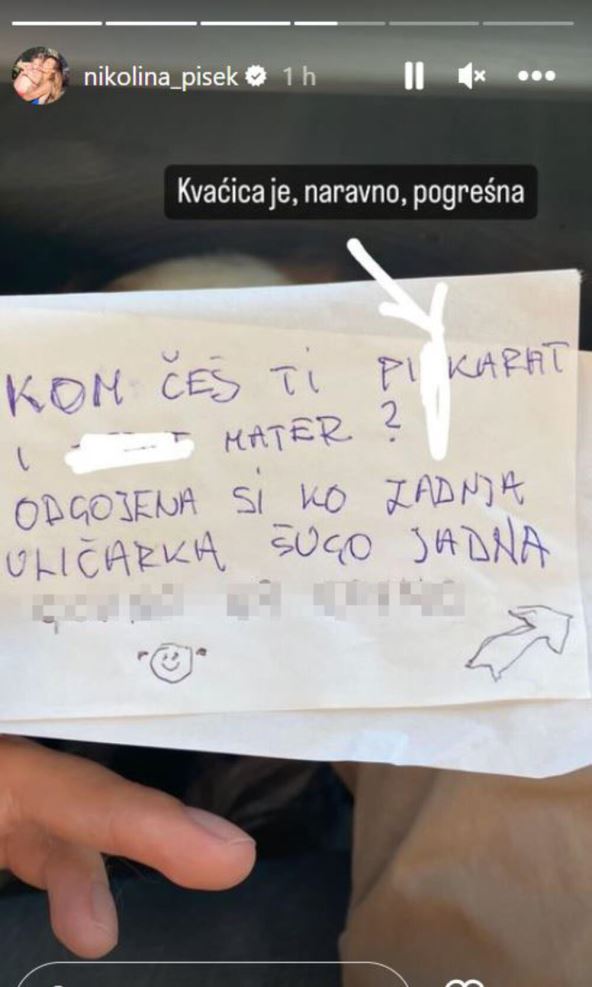 nikolina_pisek 1 h
Kvaćica je, naravno, pogreśna
KOM ČEŠ TI PI KARAT
I MATER ?
ODGOJENA SI KO ZADNJA
ULIČARKA ŠUGO JADNA